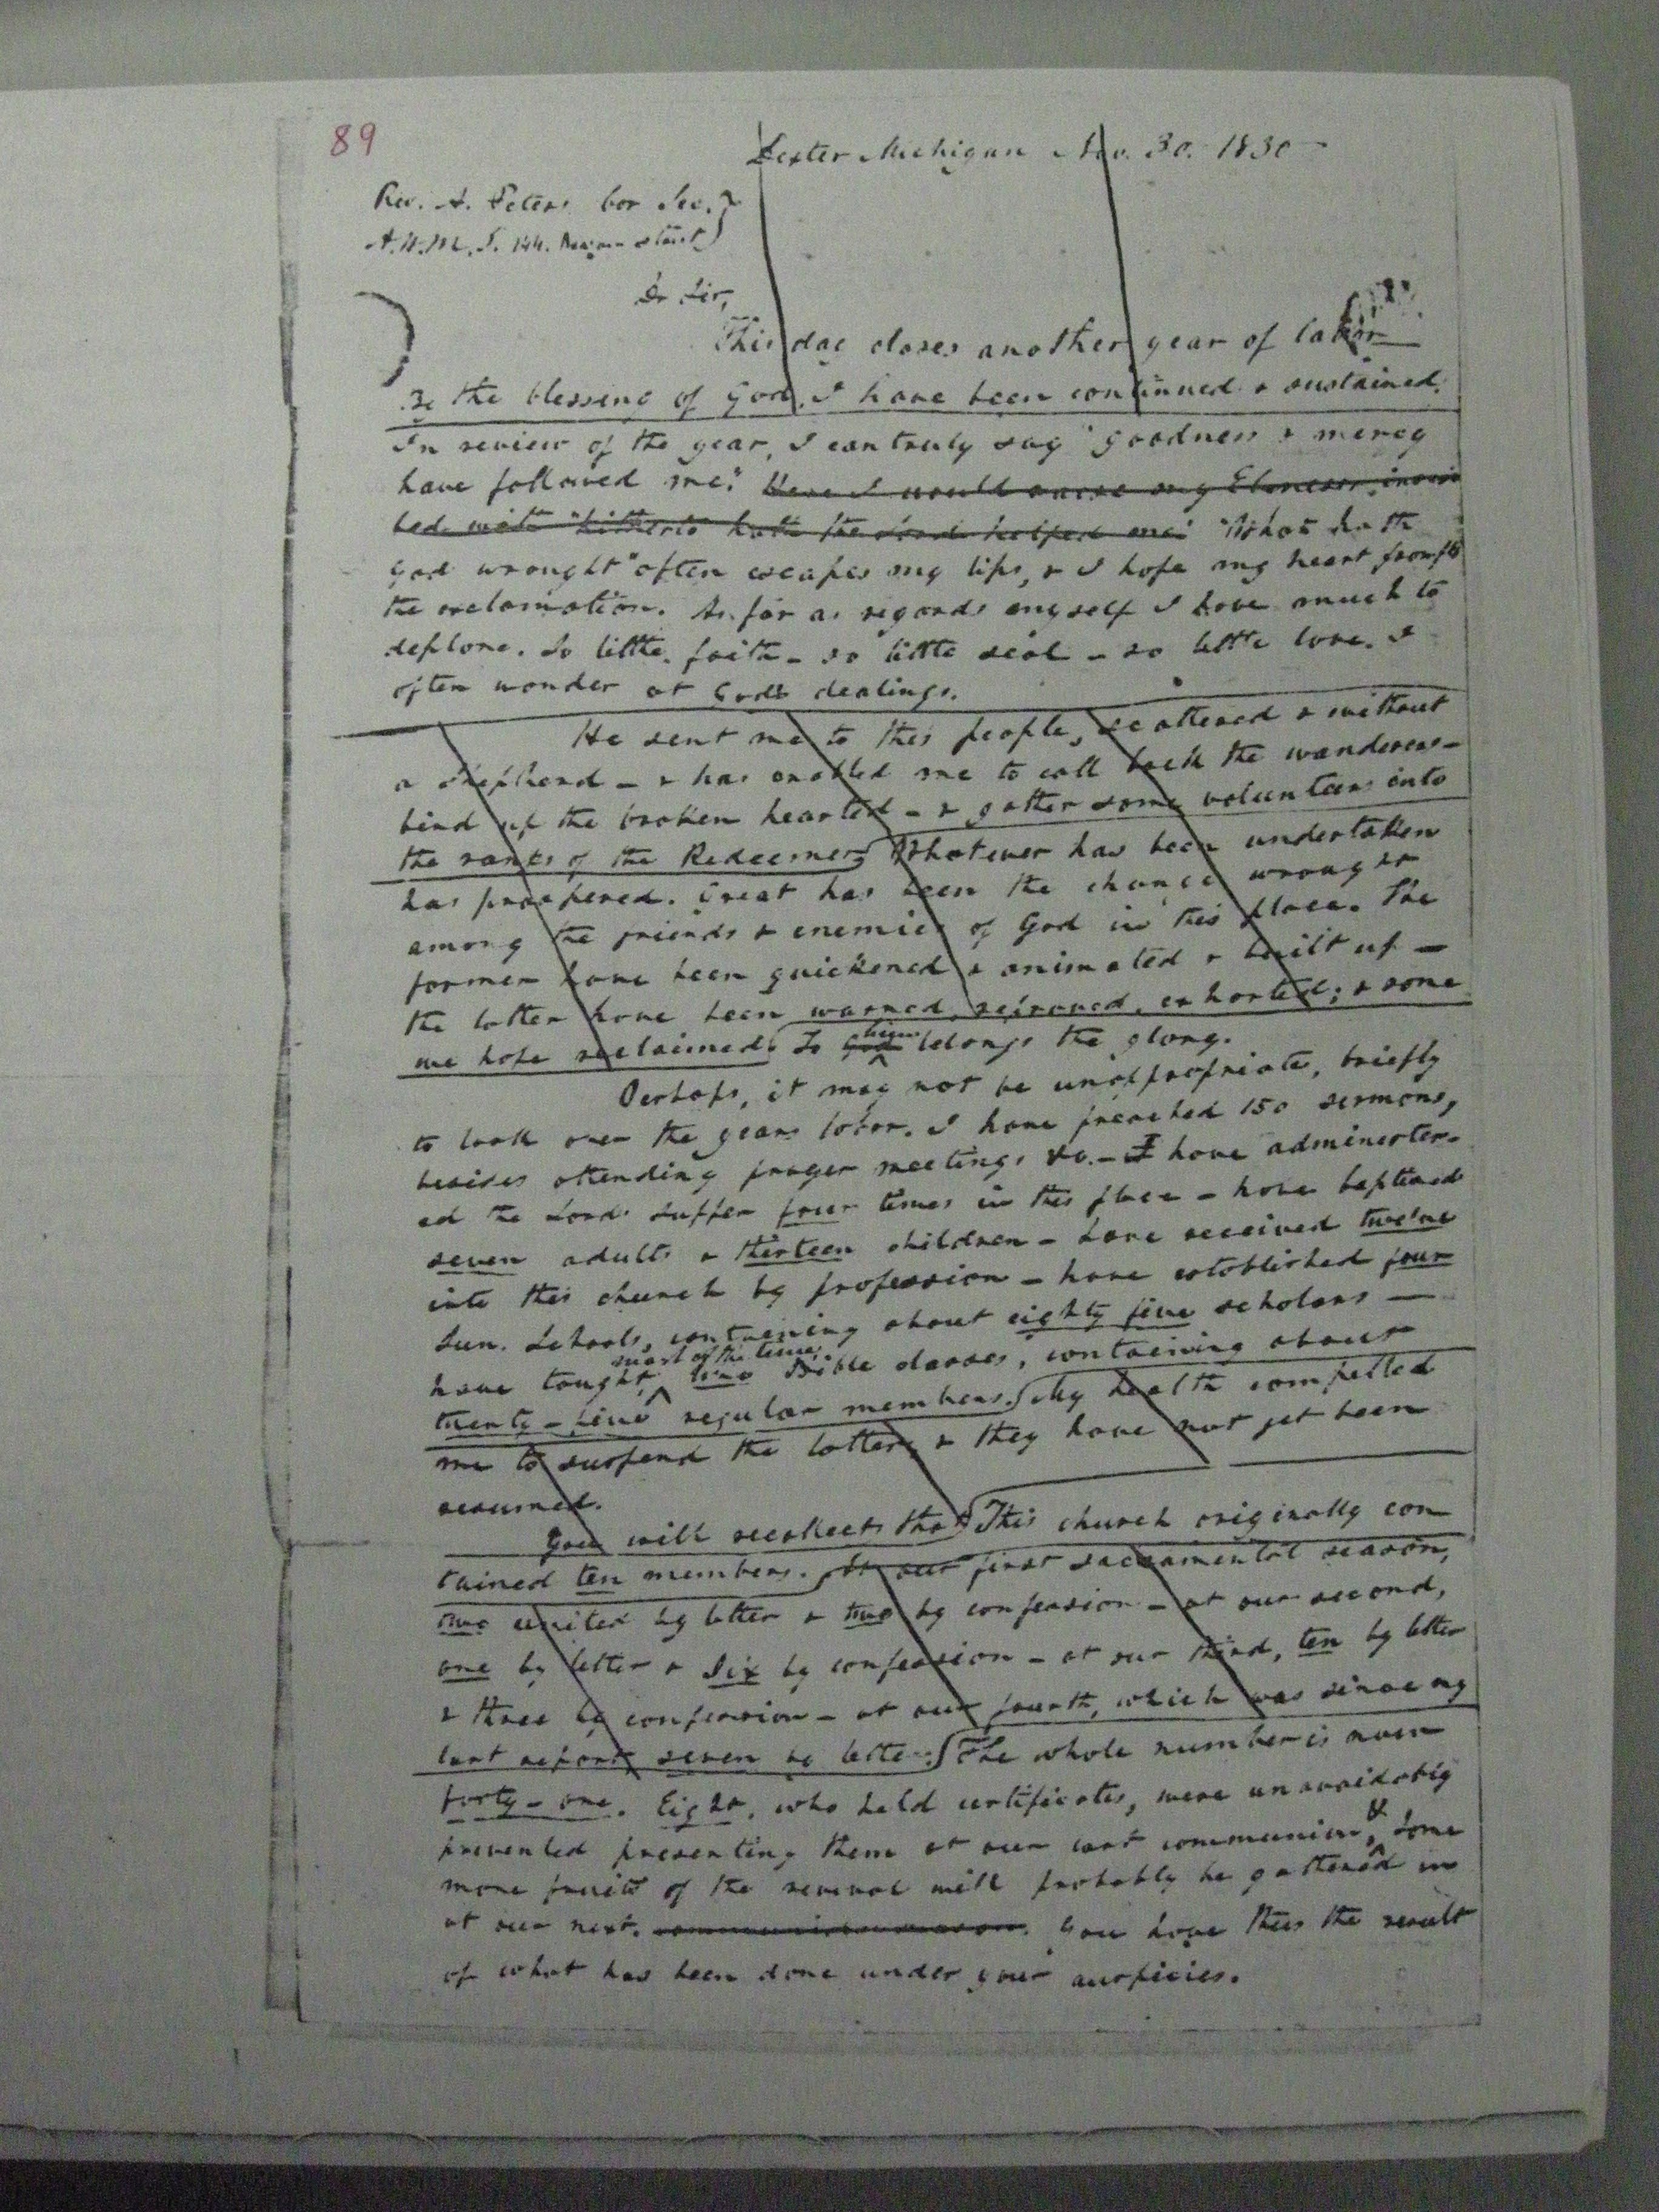 89
Dexter Michigan Nov. 30. 1830
Rev. A. Peters Cor Sec.
A.H.M.S. 144. Nassau street
Dr Sir,
This day closes another year of labor
By the blessing of God, I have been continued & sustained.
In review of the year, I can truly say "goodness & mercy
have followed me." Here I would raise my Ebenezer, inscri
bed with "hitherto hath the Lord helped me." "What hath
God wrought" often escapes my lips, & I hope my heart prompts
the exclamation. As far as regards myself I have much to
deplore. So little faith - so little zeal - so little love. I
often wonder at Gods dealings.
He sent me to this people, scattered & without
a shepherd - & has enabled me to call back the wanderers -
bind up the broken hearted - & gather some volunteers into
the ranks of the Redeemer. Whatever has been undertaken
has prospered. Great has been the change wrought
among the friends & enemies of God in this place. The
former have been quickened & animated & built up -
the latter have been warned, reproved, exhorted; & some
we hope reclaimed. To God him belongs the glory.
Perhaps, it may not be unappropriate, briefly
to look over the years labor. I have preached 150 sermons,
besides attending prayer meetings &c. - I have administer-
ed the Lords supper four times in this place - have baptised
seven adults & thirteen children - have received twelve
into this church by profession - have established four
Sun. Schools, containing about eighty five scholars -
have taught, most of the time, two Bible classes, containing about
twenty-five regular members. My health compelled
me to suspend the latter, & they have not yet been
resumed.
You will recollect that This church originally con
tained ten members. At our first sacramental season,
two united by letter & two by confession - at our second,
one by letter & six by confession - at our third, ten by letter
& three by confession - at our fourth, which was since my
last report, seven by letter. The whole number is now
forty-one. Eight, who held certificates, were unavoidably
prevented presenting them at our last communion, & some
more fruits of the revival will probably be gathered in
at our next. communion season. You have thus the result
of what has been done under your auspicies.